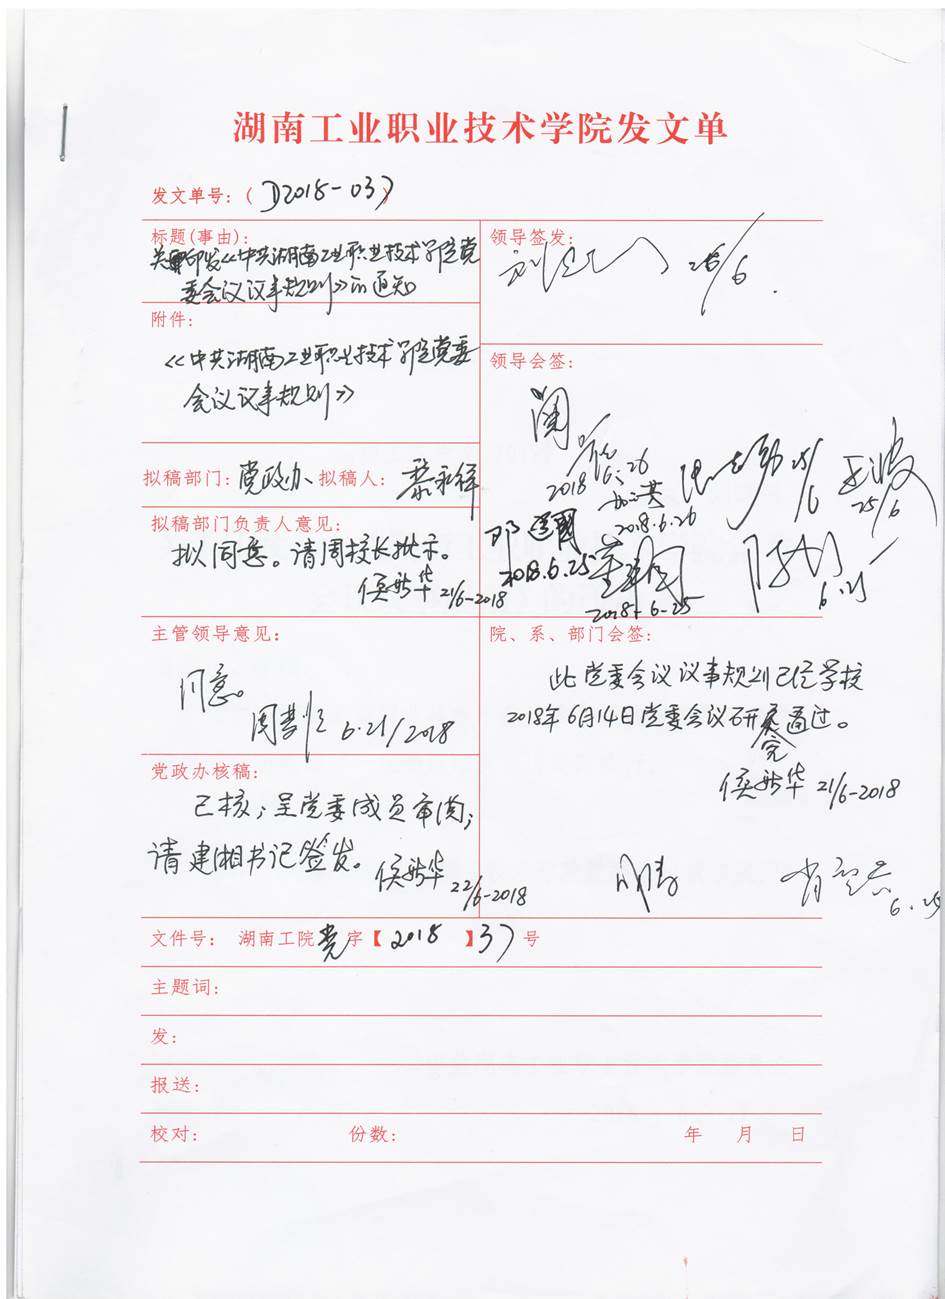 湖南工业职业技术学院发文单
发文单号:( D2018-037
标题(事由):
关于印发《中共湖南工业职业技术学院党
委会议议事规则》的通知
领导签发:
26/6.
附件:
《中共湖南工业职业技术学院党委
会议议事规则》
领导会签:
2018.6.26
2018.6.26
25/6
25/6
邓建国
2018.6.25
2018-6-25
6.25
拟稿部门:党政办 拟稿人:
拟稿部门负责人意见:
拟同意。请周校长批示。
21/6-2018
主管领导意见:
同意。
6.21/2018
院、系、部门会签:
此党委会议议事规则已经学校
2018年6月14日党委会议研究通过。
21/6-2018
6.25
党政办核稿:
已核;呈党委成员审阅;
请建湘书记签发。
22/6-2018
文件号: 湖南工院党字【2018】37号
主题词:
发:
报送:
校对: 份数: 年 月 日